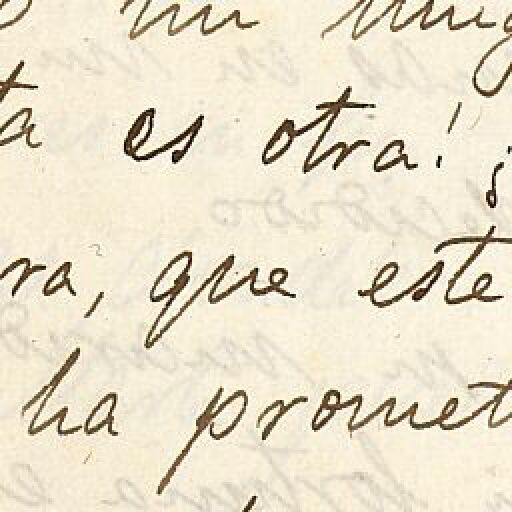 o mi mug
ta es otra! ¡
ra, que este
ha promet